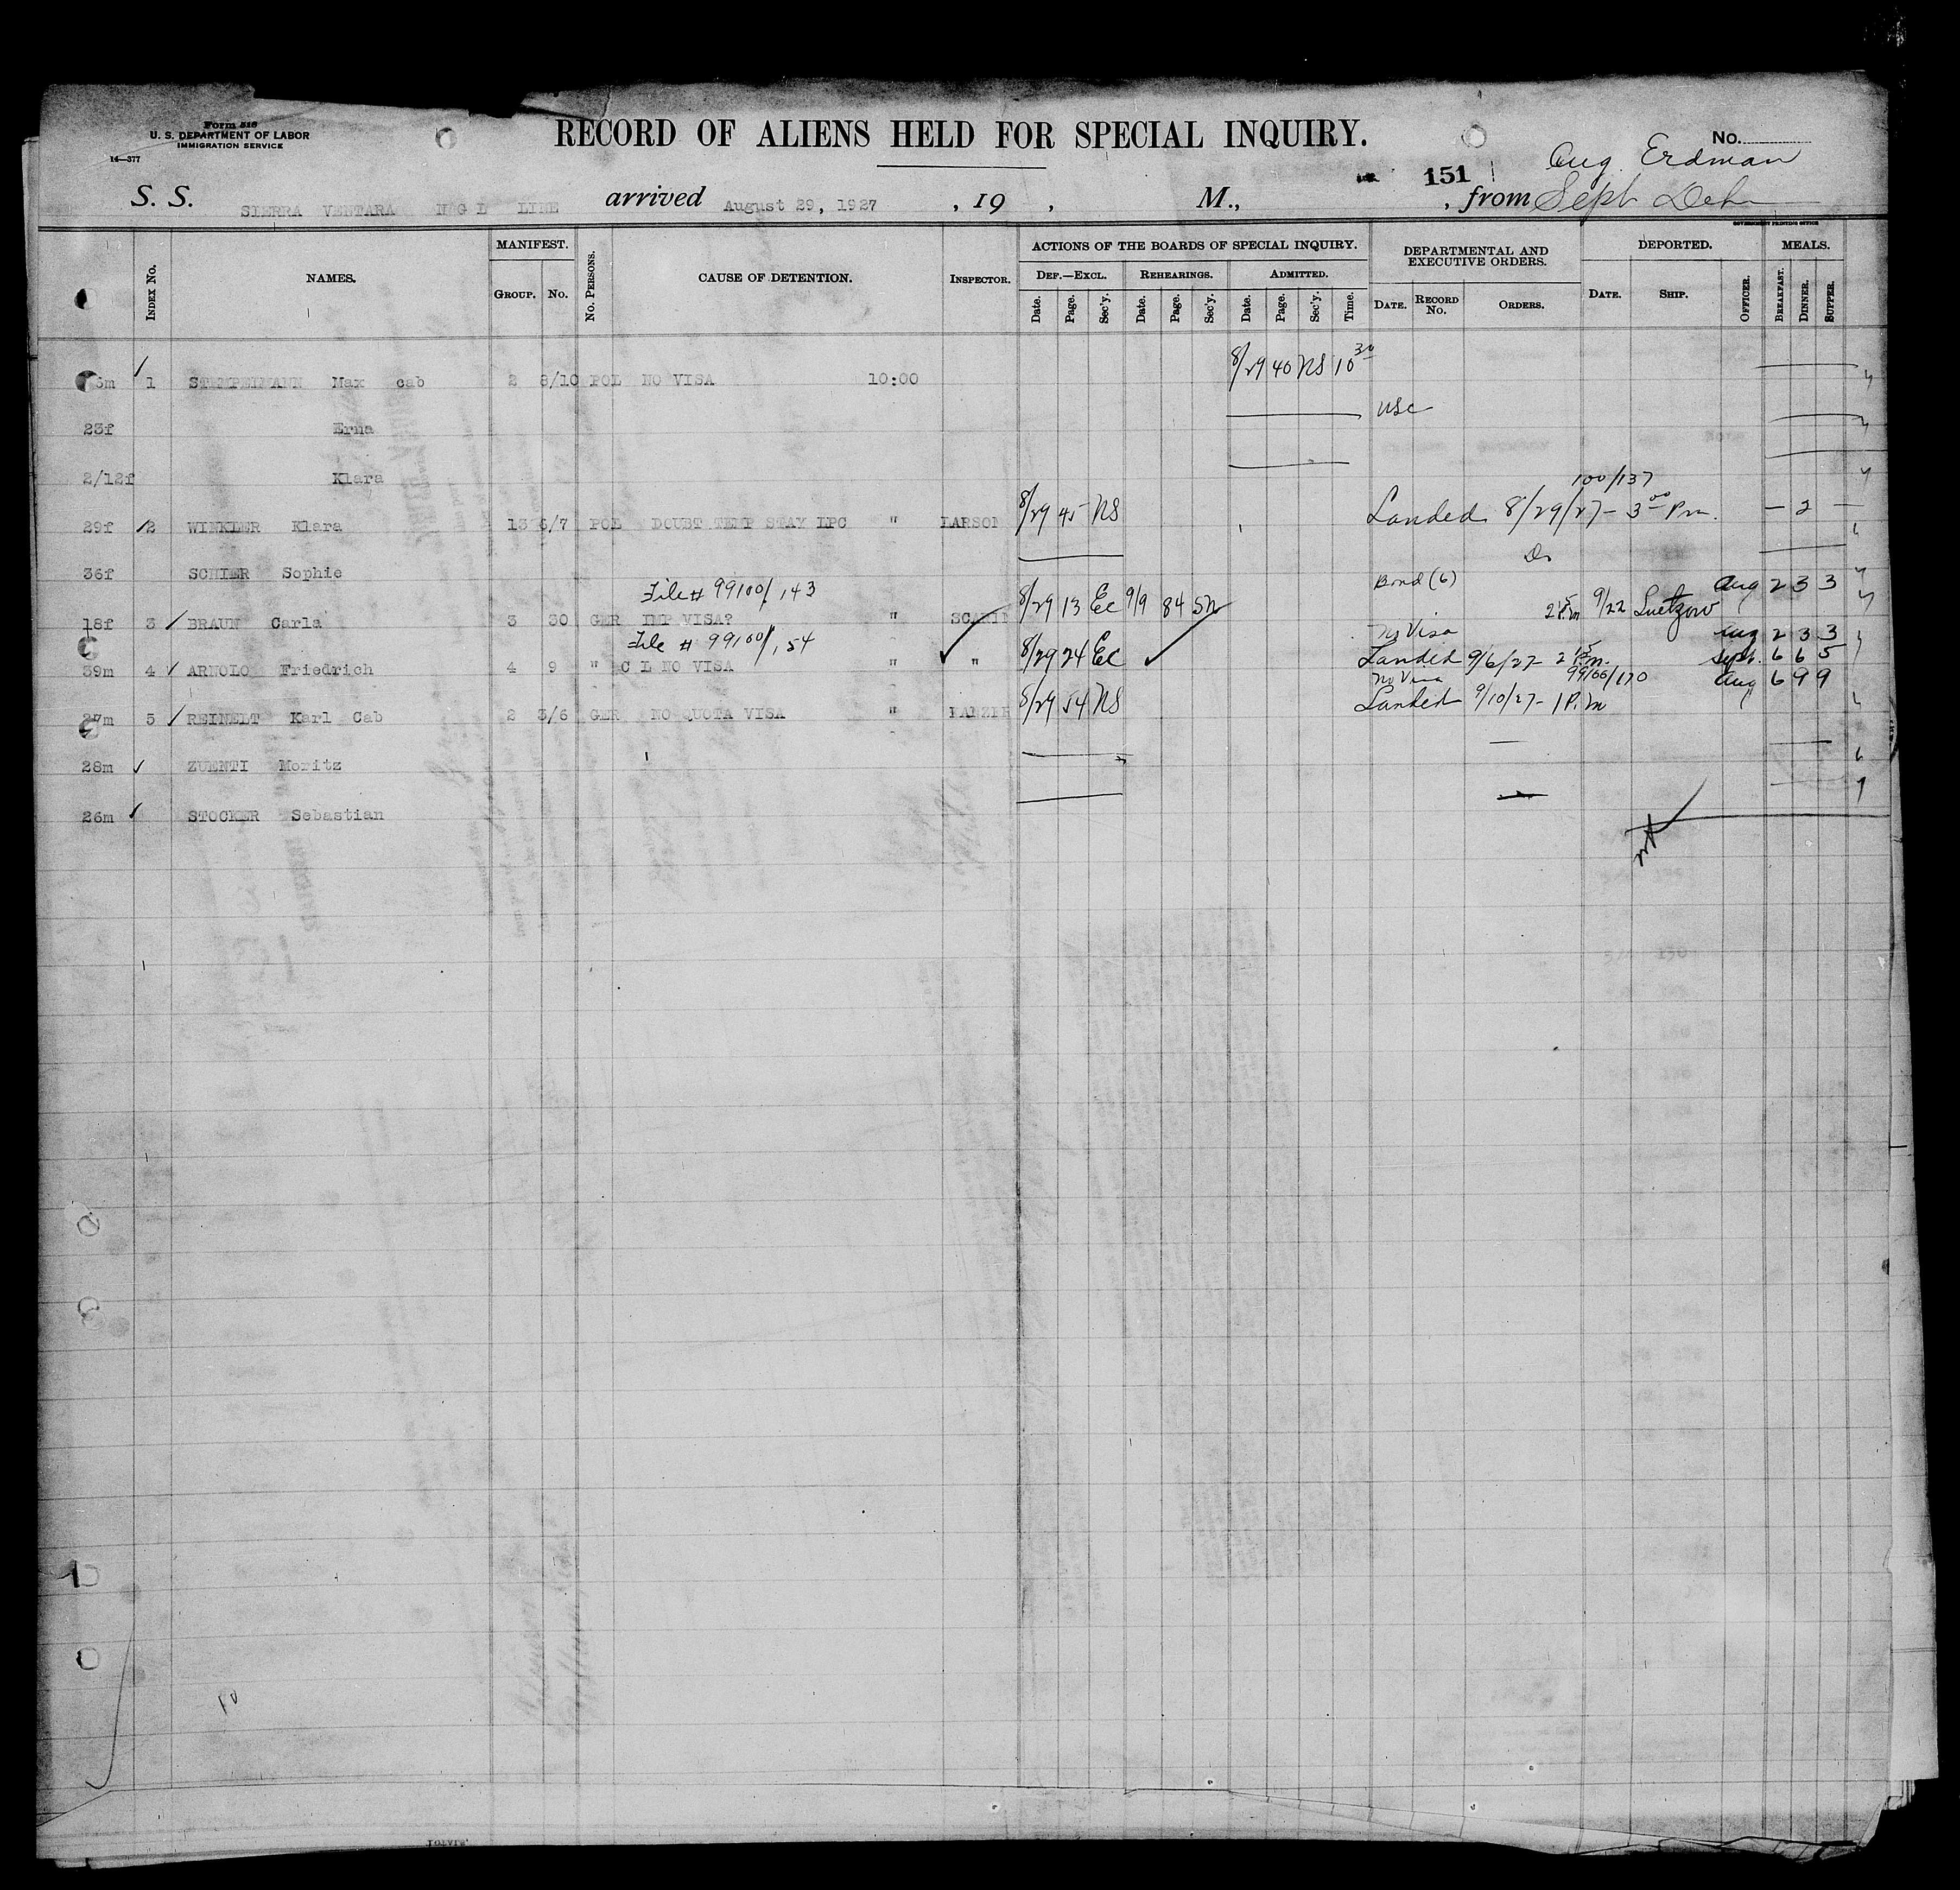 Form 516
U. S. DEPARTMENT OF LABOR
IMMIGRATION SERVICE
14—377
RECORD OF ALIENS HELD FOR SPECIAL INQUIRY.
No.
Aug. Erdman
151
S. S. SIERRA VENTARA N G L LINE arrived August 29, 1927 , 19 , M., , from Sept Dehn
GOVERNMENT PRINTING OFFICE
INDEX No. NAMES. MANIFEST. GROUP. No. No. PERSONS. CAUSE OF DETENTION. INSPECTOR. ACTIONS OF THE BOARDS OF SPECIAL INQUIRY. DEF.—EXCL. Date. Page. Sec'y. REHEARINGS. Date. Page. Sec'y. ADMITTED. Date. Page. Sec'y. Time. DEPARTMENTAL AND EXECUTIVE ORDERS. DATE. RECORD No. ORDERS. DEPORTED. DATE. SHIP. OFFICER. MEALS. BREAKFAST. DINNER. SUPPER.
1 STEMPELMANN Max cab 2 8/10 POL NO VISA 10:00 8/29 40 NS 10 30
23f Erna USC
2/12f Klara
100/137
29f 2 WINKLER Klara 13 6/7 POL DOUBT TEMP STAY LPC " LARSON 8/29 45 NS Landed 8/29/27 - 3 00 Pm. — 2 —
36f SCHIER Sophie Do
File # 99100/143 Bond (6) Aug 2 3 3
18f 3 BRAUN Carla 3 30 GER IMP VISA? " 8/29 13 EC 9/9 84 SN 9/22 Luetzow
File # 99100/154 No Visa Aug 2 3 3
39m 4 ARNOLO Friedrich 4 9 " C L NO VISA " " 8/29 24 EC Landed 9/6/27 - 2 15 P.m. Sept. 6 6 5
No Visa 99100/170 Aug 6 9 9
27m 5 REINELT Karl Cab 2 3/6 GER NO QUOTA VISA " 8/29 54 NS Landed 9/10/27 - 1 P.m
28m ZUENTI Moritz
26m STOCKER Sebastian
10